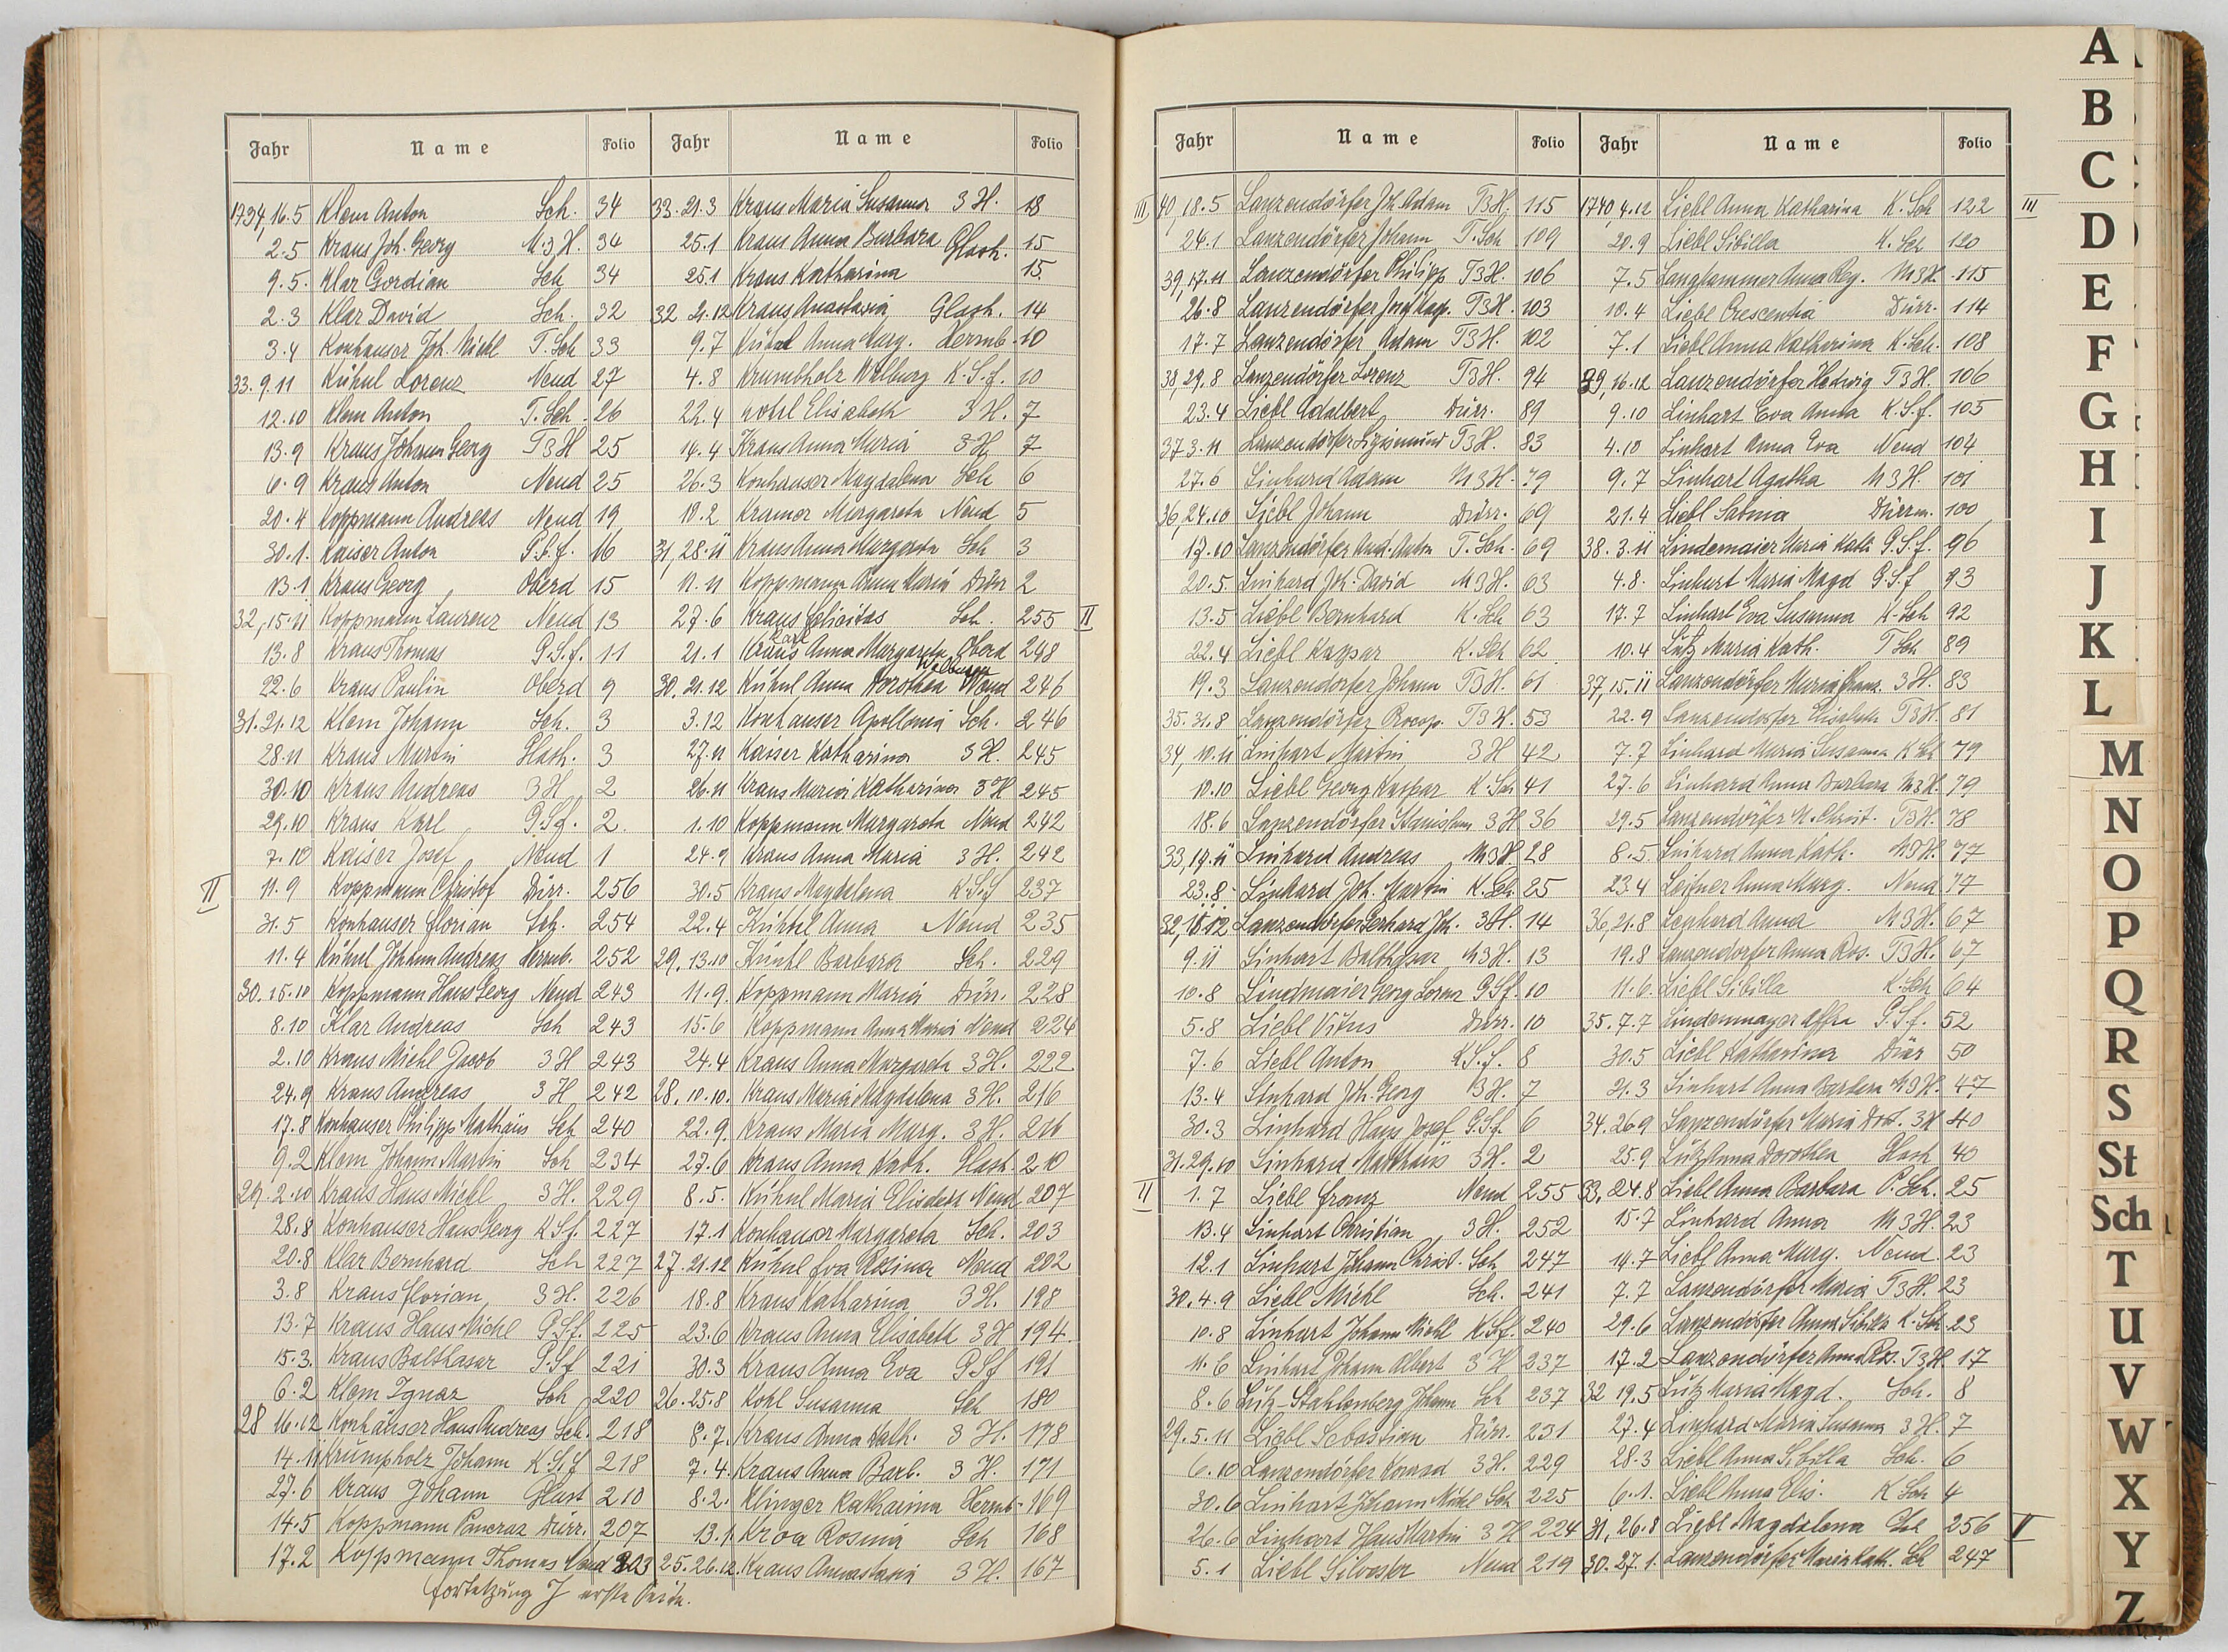 Jahr Name Folio
1734, 16.5 Klem Anton Sch. 34
2.5 Kraus Joh. Georg M.3H. 34
9.5. Klar Gordian Sch 34
2.3 Klar David Sch. 32
3.4 Konhauser Joh. Michl T. Sch 33
33. 9.11 Kühnl Lorenz Neud 27
12.10 Klem Anton T. Sch. 26
13.9 Kraus Johann Georg T3H 25
6.9 Kraus Anton Neud 25
20.4 Koppmann Andreas Neud 19
30.1. Kaiser Anton 16
13.1 Kraus Georg Oberd 15
32, 15.11 Koppmann Laurenz Neud 13
13.8 Kraus Thomas G.S.f. 11
22.6 Kraus Paulin Oberd 9
31. 21.12 Klem Johann Sch. 3
28.11 Kraus Martin Glash. 3
30.10 Kraus Andreas 3H 2
29.10 Kraus Karl G.Sf. 2
7.10 Kaiser Josef Neud 1
II 11.9 Koppmann Christof Dürr. 256
31.5 Konhauser Florian Sch. 254
11.4 Kühnl Johann Andreas Herrnb. 252
30. 15.10 Koppmann Hans Georg Neud 243
8.10 Klar Andreas Sch 243
2.10 Kraus Michl Jacob 3H 243
24.9 Kraus Andreas 3H 242
17.8 Konhauser Philipp Mathäus Sch 240
9.2 Klem Johann Martin Sch 234
29. 2.10 Kraus Hans Michl 3H. 229
28.8 Konhauser Hans Georg K.Sf. 227
20.8 Klar Bernhard Sch 227
3.8 Kraus Florian 3H. 226
13.7 Kraus Hans Michl G.Sf. 225
15.3. Kraus Balthasar G.Sf 221
6.2 Klem Ignaz Sch 220
28 16.12 Konhäuser Hans Andreas Sch. 218
14.11 Krumpholz Johann K.S.f 218
27.6 Kraus Johann Glast 210
14.5 Koppmann Pancraz Dürr. 207
17.2 Koppmann Thomas Neud 203
Fortsetzung J erste Seite.
Jahr Name Folio
33. 21.3 Kraus Maria Susanna 3H. 18
25.1 Kraus Anna Barbara Glash. 15
25.1 Kraus Katharina 15.
32 21.12 Kraus Anastasia Glash. 14
9.7 Kühnl Anna Marg. Herrnb. 10
4.8 Krumbholz Walburg K.S.f. 10
22.4 Elisabeth 3H. 7
14.4 Kraus Anna Maria 3H 7
26.3 Konhauser Magdalena Sch 6
18.2 Kramer Margareta Neud 5
31, 28.11 Kraus Anna Margareta Sch 3
11.11 Koppmann Anna Maria Dürr 2
27.6 Kraus Felicitas Sch. 255 II
21.1 Kraus Anna Margareta Oberd 248
Walburga
30. 21.12 Kühnl Anna Dorothea Neud 246
3.12 Konhauser Apollonia Sch. 246
27.11 Kaiser Katharina 3H. 245
26.11 Kraus Maria Katharina 3H 245
1.10 Koppmann Margareta Neud 242
24.9 Kraus Anna Maria 3H. 242
30.5 Kraus Magdalena K.Sf 237
22.4 Kühnl Anna Neud 235
29. 13.10 Künbl Barbara Sch. 229
11.9. Koppmann Maria Dürr. 228
15.6 Koppmann Anna Maria Neud 224
24.4 Kraus Anna Margareta 3H. 222
28. 10.10. Kraus Maria Magdalena 3H. 216
22.9. Kraus Maria Marg. 3H. 216
27.6 Kraus Anna Kath. Glash. 210
8.5. Kühnl Maria Elisabeth Neud 207
17.1 Konhauser Margareta Sch. 203
27. 21.12 Kühnl Eva Rosina Neud 202
18.8 Kraus Katharina 3H. 198
23.6 Kraus Anna Elisabeth 3H 194.
30.3 Kraus Anna Eva G.Sf 191
26. 25.8 Kohl Susanna Sch 180
8.7. Kraus Anna Kath. 3H. 178
7.4. Kraus Anna Barb. 3H. 171
8.2. Klinger Katharina Herrnb. 169
13.1 Kroa Rosina Sch 168
25. 26.12. Kraus Annastasia 3H. 167
Jahr Name Folio
III 40 18.5 Lanzendörfer Joh. Adam T3H. 115
24.1 Lanzendörfer Johann T. Sch 109
39, 17.11 Lanzendörfer Philipp T3H. 106
26.8 Lanzendörfer T3H. 103
17.7 Lanzendörfer Adam T3H. 102
38, 29.8 Lanzendörfer Lorenz T3H. 94
23.4 Liebl Adalbert Dürr. 89
37 3.11 Lanzendörfer Sigismund T3H. 83
27.6 Linhard Adam M3H. 79
36, 24.10 Liebl Johann Dürr. 69
17.10 Lanzendörfer And. Anton T. Sch. 69
20.5. Linhard Joh. David M3H. 63
13.5 Liebl Bernhard K. Sch 63
22.4 Liebl Kaspar K. Sch 62
19.3 Lanzendorfer Johann T3H. 61
35. 31.8 Lanzendörfer Procop. T3H. 53
34, 10.11 Linhart Martin 3H 42
10.10 Liebl Georg Kaspar K Sch 41
18.6 Lanzendörfer Stanislaus 3H 36
33, 19.11 Linhard Andreas M3H. 28
23.8. Linhard Joh. Martin K. Sch. 25
32, Lanzendörfer Gerhard Joh. 3H. 14
9.11 Linhart Balthasar M3H. 13
10.8 Lindmaier Georg Lorenz G.Sf. 10
5.8 Liebl Vitus Dürr. 10
7.6 Liebl Anton K.S.f. 8
13.4 Linhard Joh. Georg 3H. 7
30.3 Linhard Hans Josef G.Sf. 6
31. 29.10 Linhard Matthäus 3H. 2
II 1.7 Liebl Franz Neud 255
13.4 Linhart Christian 3H. 252
12.1 Linhart Johann Christ. Sch 247
30. 4.9 Liebl Michl Sch. 241
10.8 Linhart Johann Michl K.Sf. 240
11.6 Linhart Johann Albert 3H 237
8.6 Lütz-Stahlenberg Johann Sch 237
29. 5.11 Liebl Sebastian Dürr. 231
6.10 Lanzendörfer Konrad 3H. 229
30.6 Linhart Johann Michl Sch 225
26.6 Linhart Hans Martin 3H 224
5.1 Liebl Silvester Neud 219
Jahr Name Folio
1740 4.12 Liebl Anna Katharina K. Sch 122 III
20.9 Liebl Sibilla K. Sch 120
7.5 Langhammer Anna Reg. M3H. 115
10.4 Liebl Crescentia Dürr. 114
7.1 Liebl Anna Katherina K. Sch. 108
39, 16.12 Lanzendörfer Hedwig T3H. 106
9.10 Linhart Eva Anna K.S.f. 105
4.10 Linhart Anna Eva Neud 104
9.7 Linhart Agatha M3H. 101
21.4 Liebl Sabina Dürrm. 100
38. 3.11 Lindemaier Maria Kath. G.S.f. 96
4.8. Linhart Maria Magd G.S.f 93
17.7 Linhart Eva Susanna K. Sch 92
10.4 Lütz Maria Kath. T Sch 89
37, 15.11 Lanzendörfer Maria Franz. 3H. 83
22.9 Lanzendorfer Elisabeth T3H. 81
7.7 Linhard Maria Susanna K Sch 79
27.6 Linhard Anna Barbara M3H. 79
29.5 Lanzendörfer M. Christ. T3H. 78
8.5. Linhard Anna Kath. M3H. 77
23.4 Leißner Anna Marg. Neud 77
36, 21.8 Lenhard Anna M3H. 67
19.8 Lanzendorfer Anna Ros. T3H. 67
11.6. Liebl Sibilla K. Sch 64
35. 7.7 Lindenmayer Affra G.S.f. 52
30.5 Liebl Katharina Dürr 50
21.3 Linhart Anna Barbara M3H. 47
34. 26.9 Lanzendörfer Maria Dort. 3H 40
25.9 Lütz Anna Dorothea Glash 40
33, 24.8 Liebl Anna Barbara P. Sch. 25
15.7 Linhard Anna M3H. 23
14.7 Liebl Anna Marg. Neud. 23
7.7 Lanzendörfer Maria T3H. 23
29.6 Lanzendörfer Anna Sibilla K. Sch 23
17.2 Lanzendörfer Anna Ros. T3H. 17
32 19.5 Lütz Maria Magd. Sch. 8
27.4 Linhard Maria Susanna 3H. 7
28.3 Liebl Anna Sibilla Sch. 6
6.1. Liebl Anna Elis. K Sch 4
31, 26.8 Liebl Magdalena Sch 256 II
30. 27.1. Lanzendörfer Maria Kath. Sch 247
A
B
C
D
E
F
G
H
I
J
K
L
M
N
O
P
Q
R
S
St
Sch
T
U
V
W
X
Y
Z